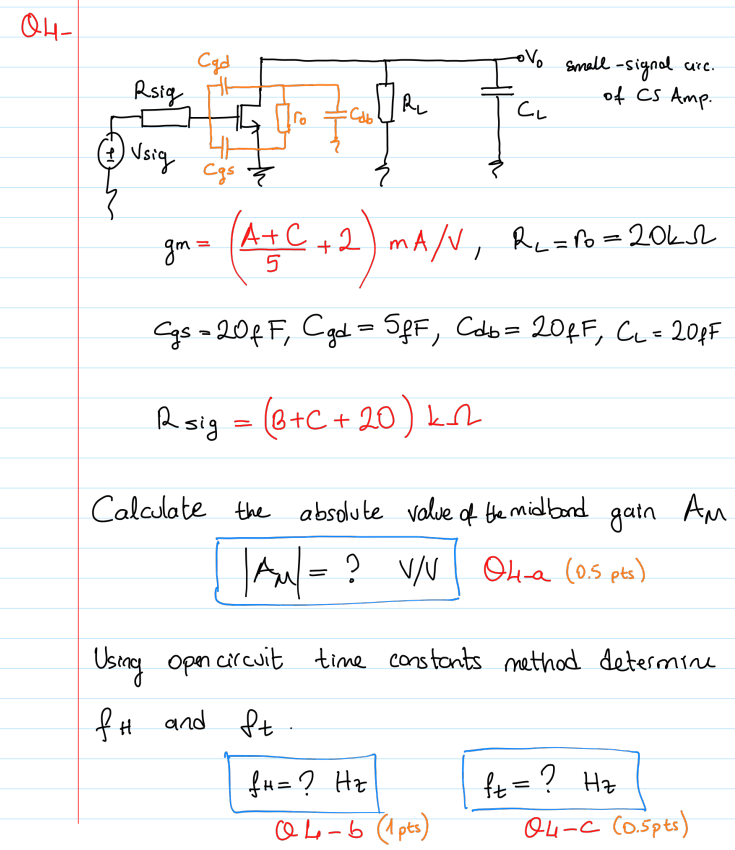 Q4-
Cgd
Vo small-signal circ.
of CS Amp.
Rsig
ro
Cdb
RL
CL
Vsig
Cgs
gm = (A+C/5 + 2) mA/V, RL = ro = 20kΩ
Cgs = 20fF, Cgd = 5fF, Cdb = 20fF, CL = 20fF
Rsig = (B+C+20) kΩ
Calculate the absolute value of the midband gain AM
|AM| = ? V/V Q4-a (0.5 pts)
Using open circuit time constants method determine
fH and ft.
fH = ? Hz ft = ? Hz
Q4-b (1pts) Q4-c (0.5pts)